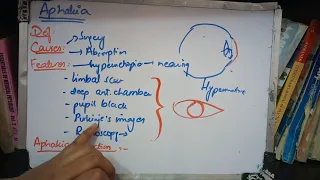 Aphakia
Def
Causes: → Surgery
→ Absorption
Features: → hypermetropia →
- limbal scar
- deep ant. chamber
- pupil black
- Purkinje's images
Aphakia
Hypermetro